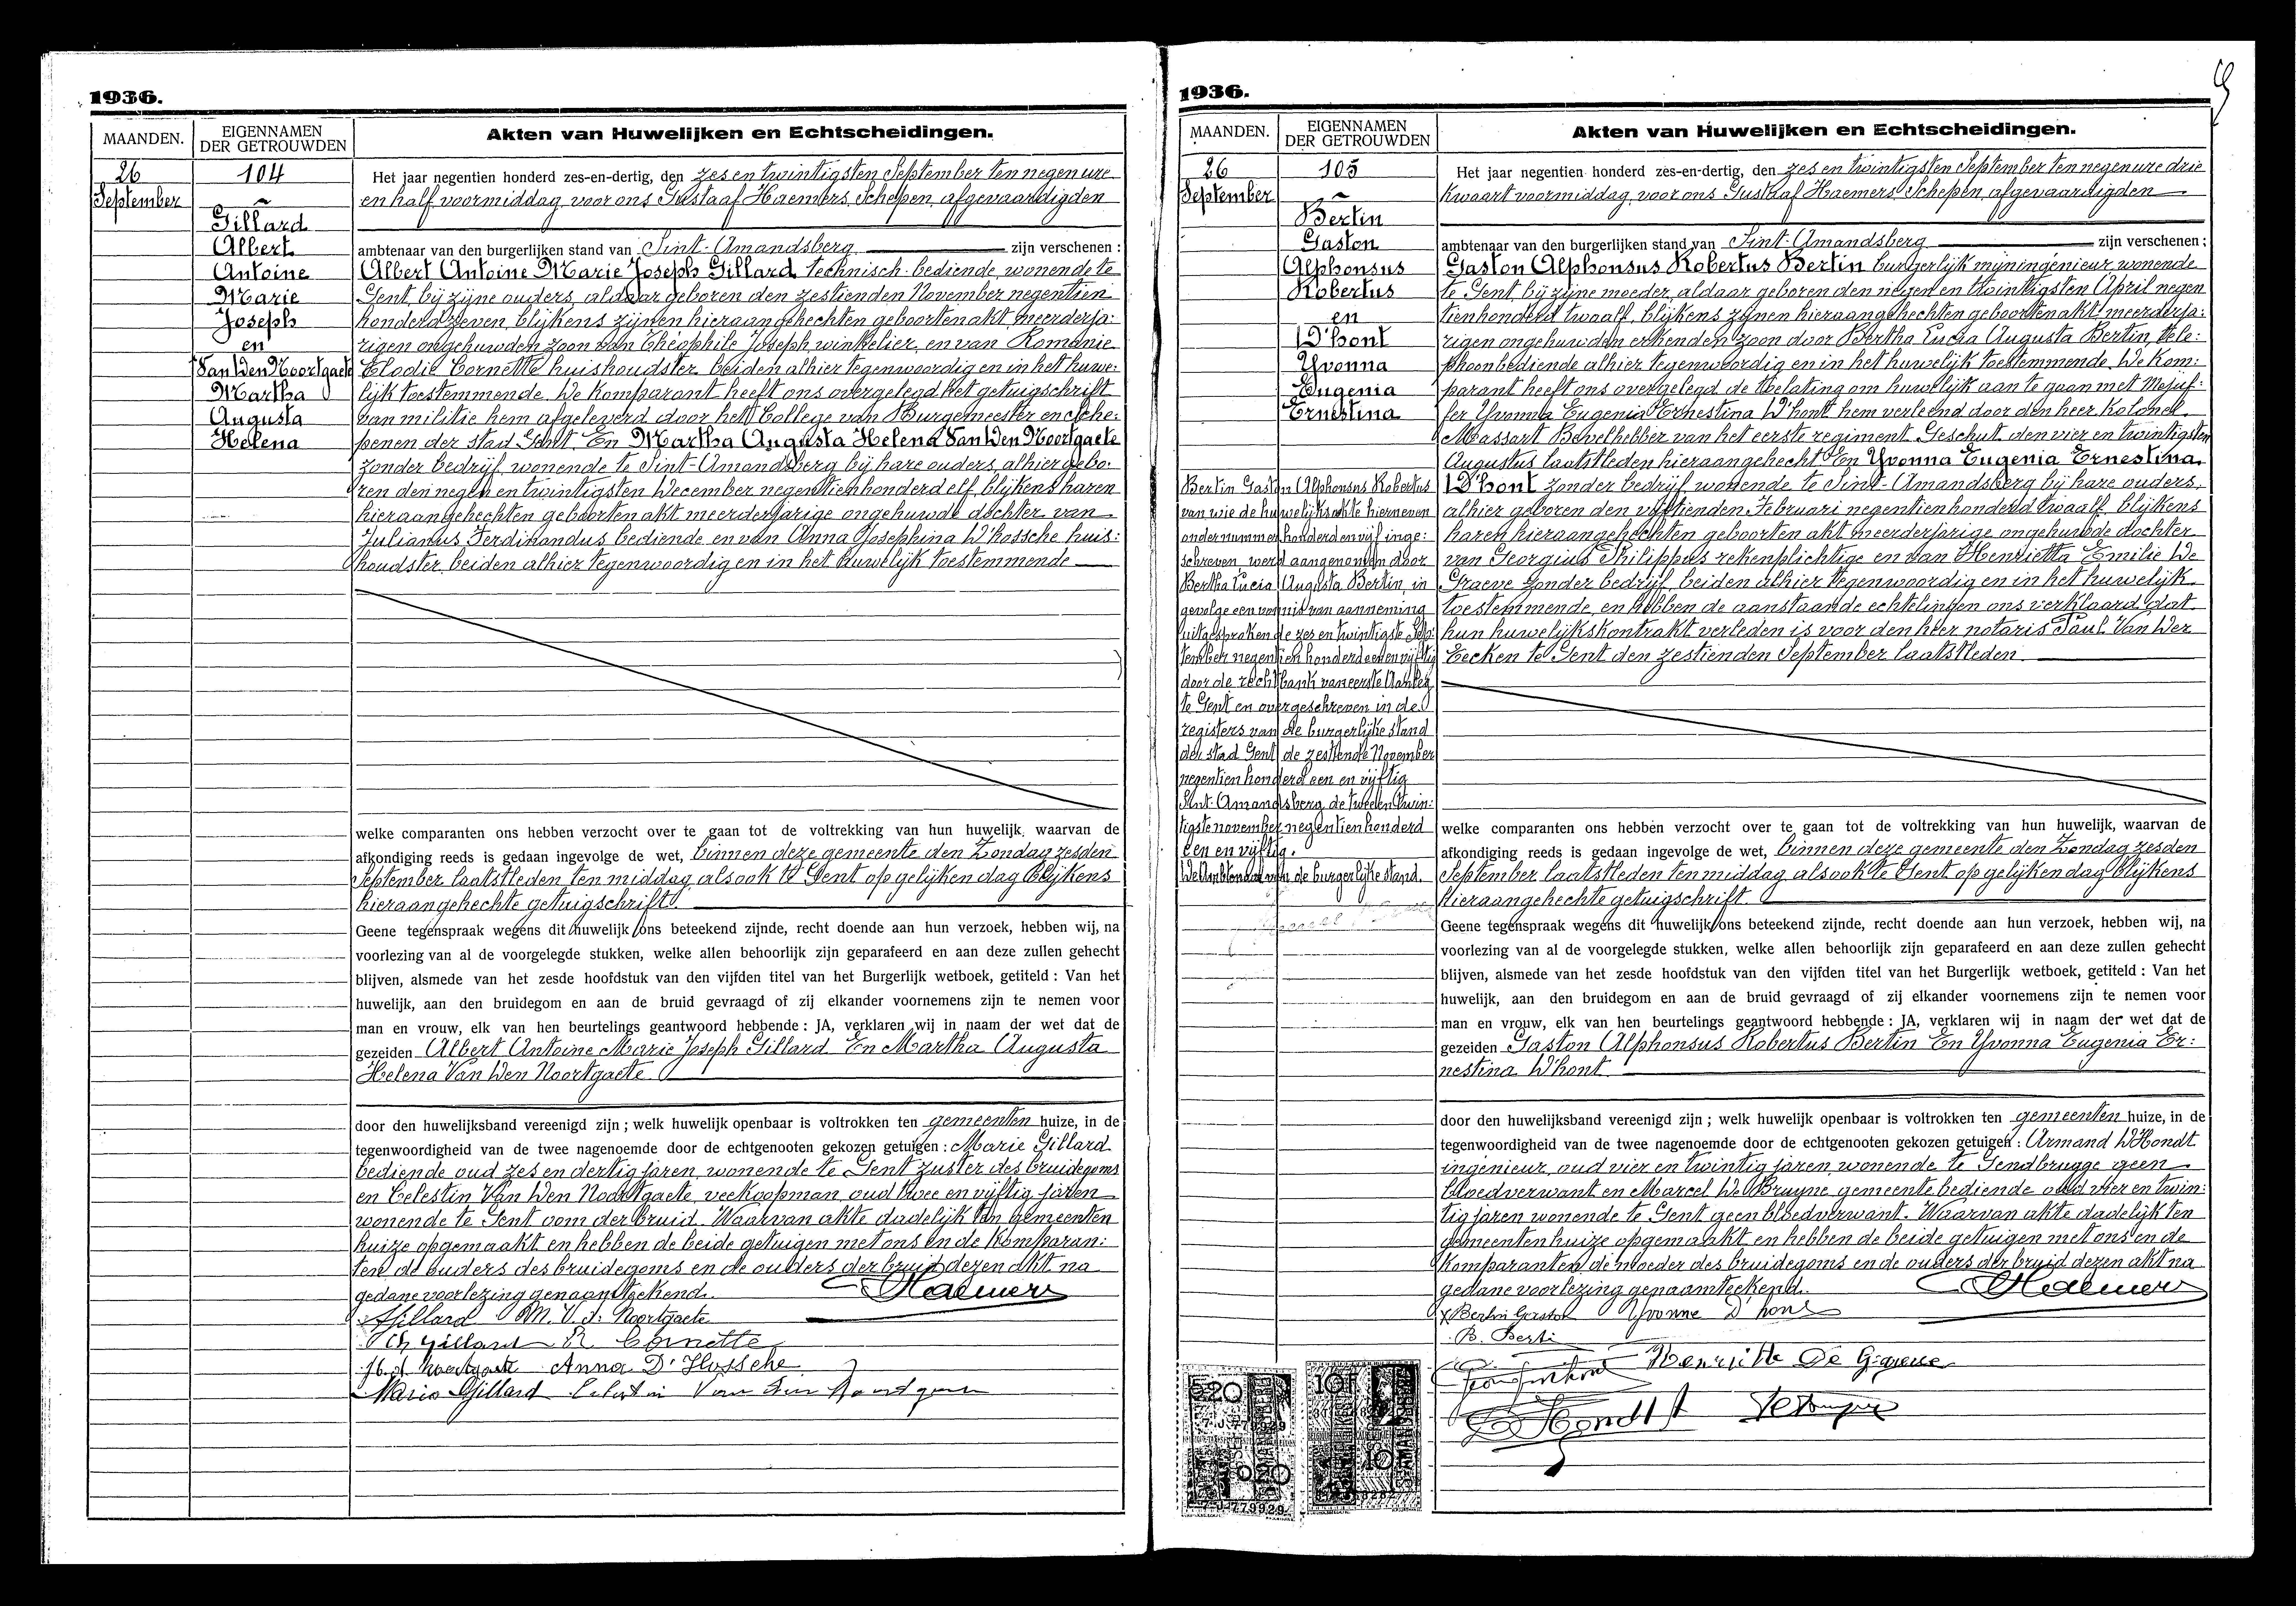 1936.
MAANDEN.
EIGENNAMEN
DER GETROUWDEN
Akten van Huwelijken en Echtscheidingen.
26
September
104
Gillard
Albert
Antoine
Marie
Joseph
en
Van Den Noortgaete
Martha
Augusta
Helena
Het jaar negentien honderd zes-en-dertig, den zes en twintigsten September ten negen ure
en half voormiddag, voor ons Gustaaf Haemers, Schepen, afgevaardigden
ambtenaar van den burgerlijken stand van Sint-Amandsberg zijn verschenen :
Albert Antoine Marie Joseph Gillard, technisch-bediende, wonende te
Gent, bij zijne ouders, aldaar geboren den zestienden November negentien
honderd zeven, blijkens zijnen hieraangehechten geboortenakt, meerderja:
rigen ongehuwden zoon van Théophile Joseph, winkelier, en van Romanie
Elodie Cornette huishoudster beiden alhier tegenwoordig en in het huwe:
lijk toestemmende. De komparant heeft ons overgelegd het getuigschrift
van militie hem afgeleverd door het College van Burgemeester en Sche:
penen der stad Gent. En Martha Augusta Helena Van Den Noortgaete
zonder bedrijf, wonende te Sint-Amandsberg bij hare ouders, alhier gebo:
ren den negen en twintigsten December negentienhonderd elf, blijkens haren
hieraangehechten geboortenakt meerderjarige ongehuwde dochter van
Julianus Ferdinandus bediende, en van Anna Josephina D'hossche huis:
houdster, beiden alhier tegenwoordig en in het huwelijk toestemmende
welke comparanten ons hebben verzocht over te gaan tot de voltrekking van hun huwelijk, waarvan de
afkondiging reeds is gedaan ingevolge de wet, binnen deze gemeente den Zondag zesden
September laatstleden ten middag, alsook te Gent op gelijken dag blijkens
hieraangehechte getuigschrift.
Geene tegenspraak wegens dit huwelijk ons beteekend zijnde, recht doende aan hun verzoek, hebben wij, na
voorlezing van al de voorgelegde stukken, welke allen behoorlijk zijn geparafeerd en aan deze zullen gehecht
blijven, alsmede van het zesde hoofdstuk van den vijfden titel van het Burgerlijk wetboek, getiteld : Van het
huwelijk, aan den bruidegom en aan de bruid gevraagd of zij elkander voornemens zijn te nemen voor
man en vrouw, elk van hen beurtelings geantwoord hebbende : JA, verklaren wij in naam der wet dat de
gezeiden Albert Antoine Marie Joseph Gillard En Martha Augusta
Helena Van Den Noortgaete
door den huwelijksband vereenigd zijn ; welk huwelijk openbaar is voltrokken ten gemeenten huize, in de
tegenwoordigheid van de twee nagenoemde door de echtgenooten gekozen getuigen : Marie Gillard
bediende oud zes en dertig jaren, wonende te Gent zuster des bruidegoms
en Celestin Van Den Noortgaete, veekoopman, oud twee en vijftig jaren
wonende te Gent oom der bruid. Waarvan akte dadelijk ten gemeenten
huize opgemaakt en hebben de beide getuigen met ons en de komparan:
ten, de ouders des bruidegoms en de ouders der bruid dezen akt na
gedane voorlezing genaamteekend. Haemers
AGillard M. V. d. Noortgaete
Th Gillard R Cornette
J. v. d. Noortgaete Anna D'Hossche
Marie Gillard Celestin Van den Noortgaete
1936.
MAANDEN.
EIGENNAMEN
DER GETROUWDEN
Akten van Huwelijken en Echtscheidingen.
26
September
105
Bertin
Gaston
Alphonsus
Robertus
en
D'hont
Yvonna
Eugenia
Ernestina
Bertin Gaston Alphonsus Robertus
van wie de huwelijksakte hierneven
onder nummer honderd en vijf inge:
schreven, werd aangenomen door
Bertha Lucia Augusta Bertin, in
gevolge een vonnis van aanneming
uitgesproken de zes en twintigste Sep:
tember negentien honderd een en vijftig
door de rechtbank van eerste Aanleg
te Gent en overgeschreven in de
registers van de burgerlijke stand
der stad Gent de zestiende November
negentien honderd een en vijftig
Sint-Amandsberg de twee en twin:
tigste november negentienhonderd
een en vijftig.
De Ambtenaar van de burgerlijke stand.
Het jaar negentien honderd zes-en-dertig, den zes en twintigsten September ten negen ure drie
kwaart voormiddag, voor ons Gustaaf Haemers Schepen, afgevaardigden
ambtenaar van den burgerlijken stand van Sint-Amandsberg zijn verschenen ;
Gaston Alphonsus Robertus Bertin burgerlijk mijningenieur, wonende
te Gent bij zijne moeder, aldaar geboren den negen en twintigsten April negen
tienhonderd twaalf, blijkens zijnen hieraangehechten geboortenakt meerderja:
rigen ongehuwden erkenden zoon door Bertha Lucia Augusta Bertin, tele:
phoonbediende alhier tegenwoordig en in het huwelijk toestemmende. De kom:
parant heeft ons overgelegd de toelating om huwelijk aan te gaan met Mejuf:
fer Yvonna Eugenia Ernestina D'hont hem verleend door den heer Kolonel
Massart Bevelhebber van het eerste regiment Geschut den vier en twintigsten
Augustus laatstleden hieraangehecht En Yvonna Eugenia Ernestina
D'hont zonder bedrijf wonende te Sint-Amandsberg bij hare ouders,
alhier geboren den vijftienden Februari negentienhonderd twaalf, blijkens
haren hieraangehechten geboorten akt meerderjarige ongehuwde dochter
van Georgius Philippus rekenplichtige en van Henrietta Emilie De
Graeve zonder bedrijf, beiden alhier tegenwoordig en in het huwelijk
toestemmende, en hebben de aanstaande echtelingen ons verklaard dat
hun huwelijkskontrakt verleden is voor den heer notaris Paul Van Der
Eecken te Gent den zestienden September laatstleden.
welke comparanten ons hebben verzocht over te gaan tot de voltrekking van hun huwelijk, waarvan de
afkondiging reeds is gedaan ingevolge de wet, binnen deze gemeente den Zondag zesden
September laatstleden ten middag alsook te Gent op gelijken dag blijkens
hieraangehechte getuigschrift.
Geene tegenspraak wegens dit huwelijk ons beteekend zijnde, recht doende aan hun verzoek, hebben wij, na
voorlezing van al de voorgelegde stukken, welke allen behoorlijk zijn geparafeerd en aan deze zullen gehecht
blijven, alsmede van het zesde hoofdstuk van den vijfden titel van het Burgerlijk wetboek, getiteld : Van het
huwelijk, aan den bruidegom en aan de bruid gevraagd of zij elkander voornemens zijn te nemen voor
man en vrouw, elk van hen beurtelings geantwoord hebbende : JA, verklaren wij in naam der wet dat de
gezeiden Gaston Alphonsus Robertus Bertin En Yvonna Eugenia Er:
nestina D'hont
door den huwelijksband vereenigd zijn ; welk huwelijk openbaar is voltrokken ten gemeenten huize, in de
tegenwoordigheid van de twee nagenoemde door de echtgenooten gekozen getuigen : Armand D'Hondt
ingénieur, oud vier en twintig jaren, wonende te Gendbrugge geen
bloedverwant en Marcel De Bruyne gemeente bediende oud vier en twin:
tig jaren wonende te Gent geen bloedverwant. Waarvan akte dadelijk ten
gemeentenhuize opgemaakt en hebben de beide getuigen met ons en de
komparanten, de moeder des bruidegoms en de ouders der bruid dezen akt na
gedane voorlezing genaamteekend. Haemers
Bertin Gaston Yvonne D'hont
B. Berti
Henriette De Graeve
D'Hondt A
520
7-J-779929
020
7-J-779929
10F
10